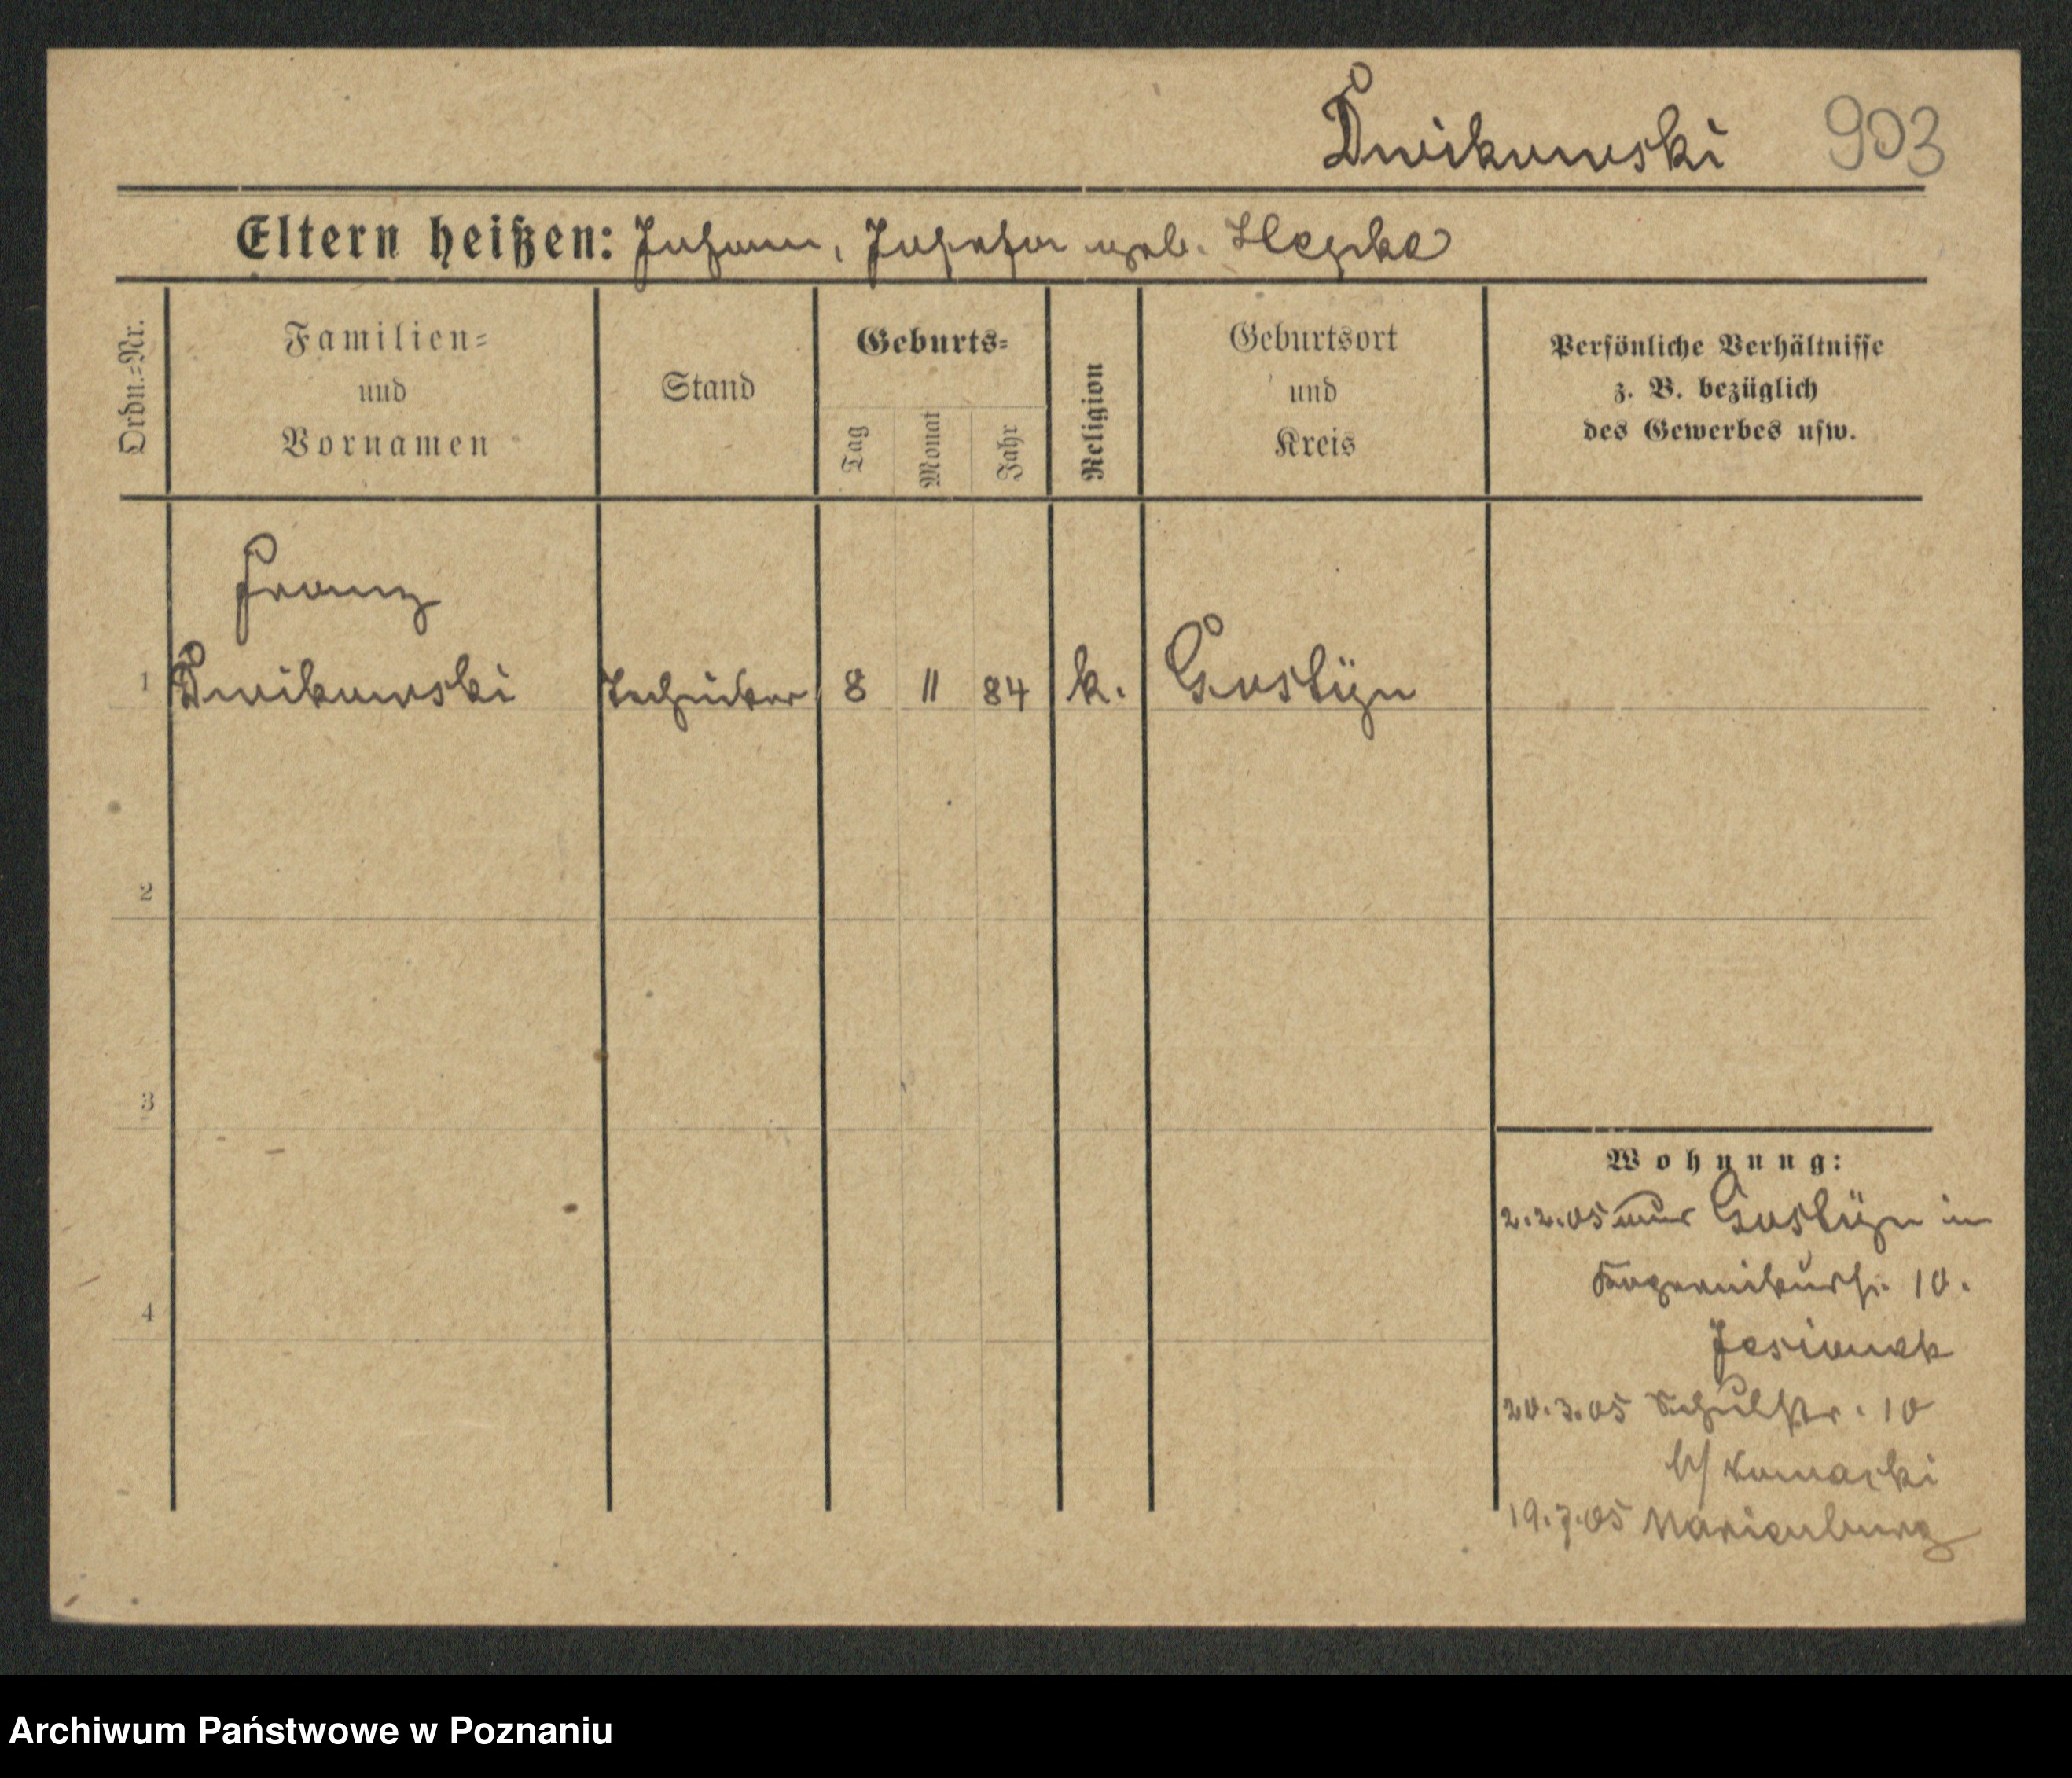 Dwikowski 903
Eltern heißen: Johann, Josefa geb.
Ordn.=Nr.
Familien=
und
Vornamen
Stand
Geburts=
Tag
Monat
Jahr
Religion
Geburtsort
und
Kreis
Persönliche Verhältnisse
z. B. bezüglich
des Gewerbes usw.
Franz
1 Dwikowski Techniker 8 11 84 k. Gostÿn
2
3
4
Wohnung:
2.2.05 aus Gostÿn in
10.
Jesionek
20.3.05 Schulstr. 10
b/
19.7.05 Marienburg
Archiwum Państwowe w Poznaniu